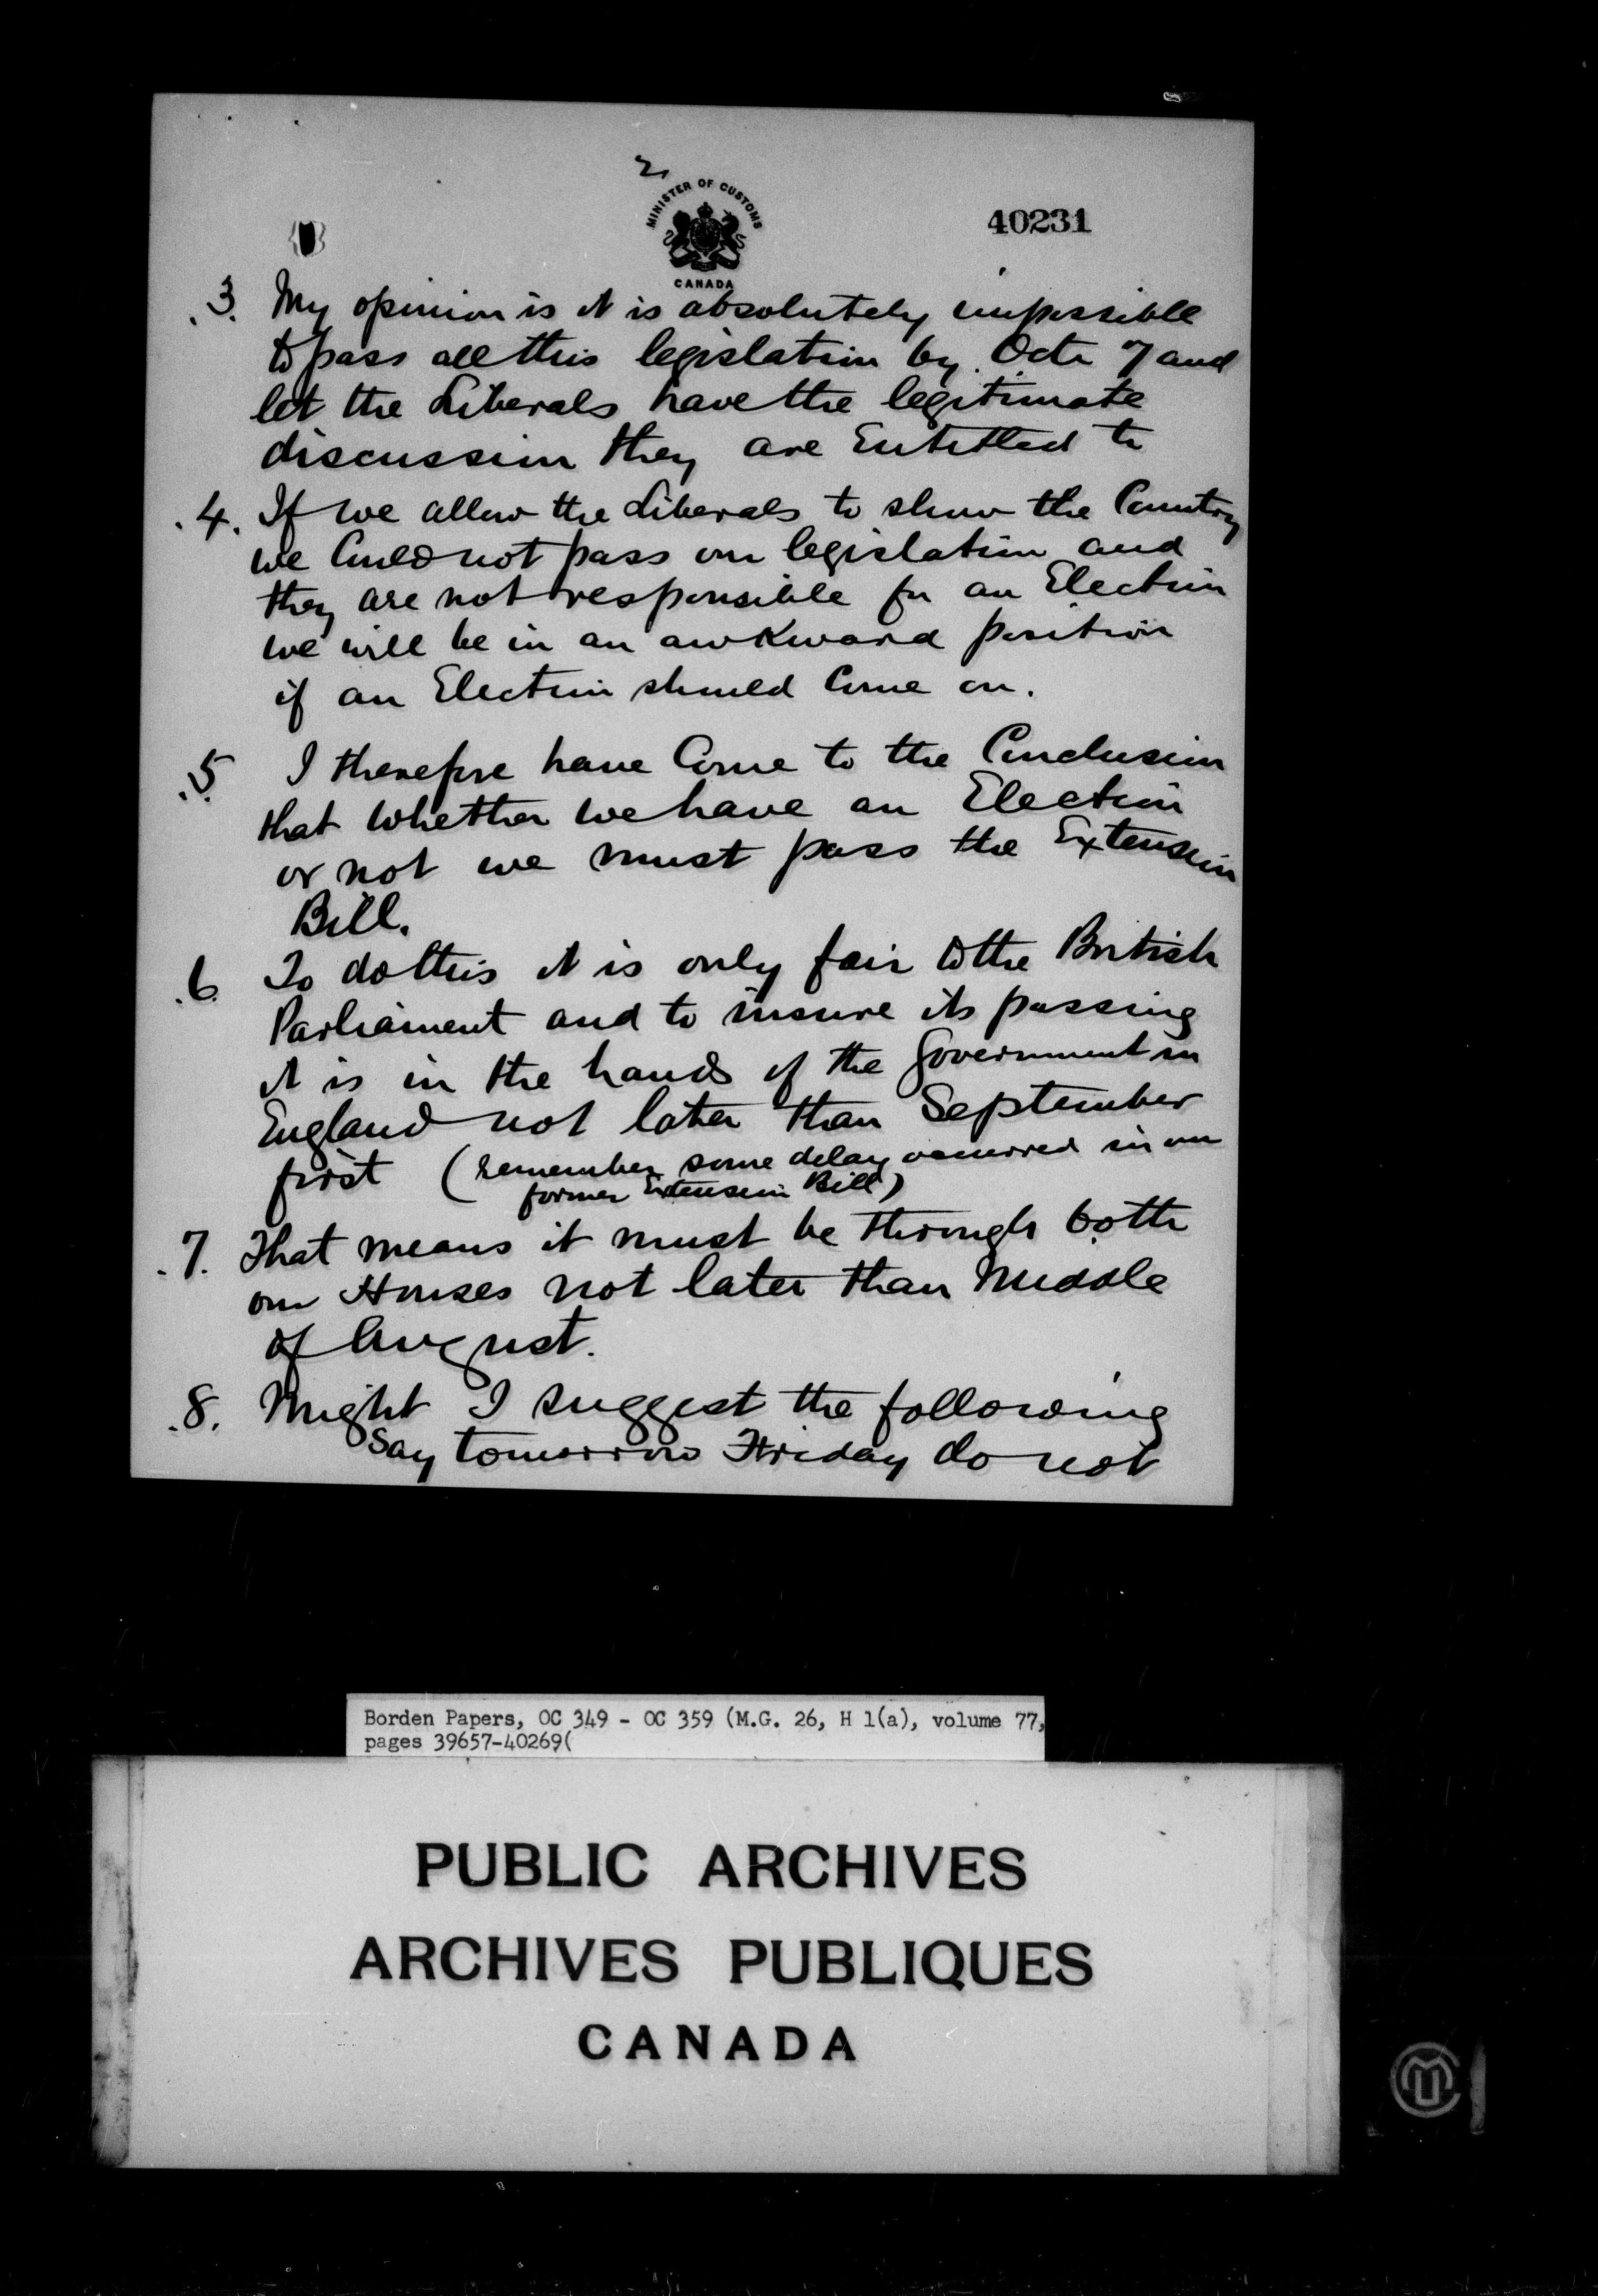 2,
MINISTER OF CUSTOMS
CANADA
40231
.3. My opinion is it is absolutely impossible
to pass all this legislation by Octr 7 and
let the Liberals have the legitimate
discussion they are Entitled to
.4. If we allow the Liberals to show the Country
we Could not pass our legislation and
they are not responsible for an Election
we will be in an awkward position
if an Election should Come on.
.5. I therefore have Come to the Conclusion
that whether we have an Election
or not we must pass the Extension
Bill.
.6. To do this it is only fair to the British
Parliament and to insure its passing
it is in the hands of the Government in
England not later than September
first (remember some delay occurred in our
former Extension Bill)
.7. That means it must be through both
our Houses not later than Middle
of August.
.8. Might I suggest the following
Say tomorrow Friday do not
Borden Papers, OC 349 - OC 359 (M.G. 26, H 1(a), volume 77,
pages 39657-40269(
PUBLIC ARCHIVES
ARCHIVES PUBLIQUES
CANADA